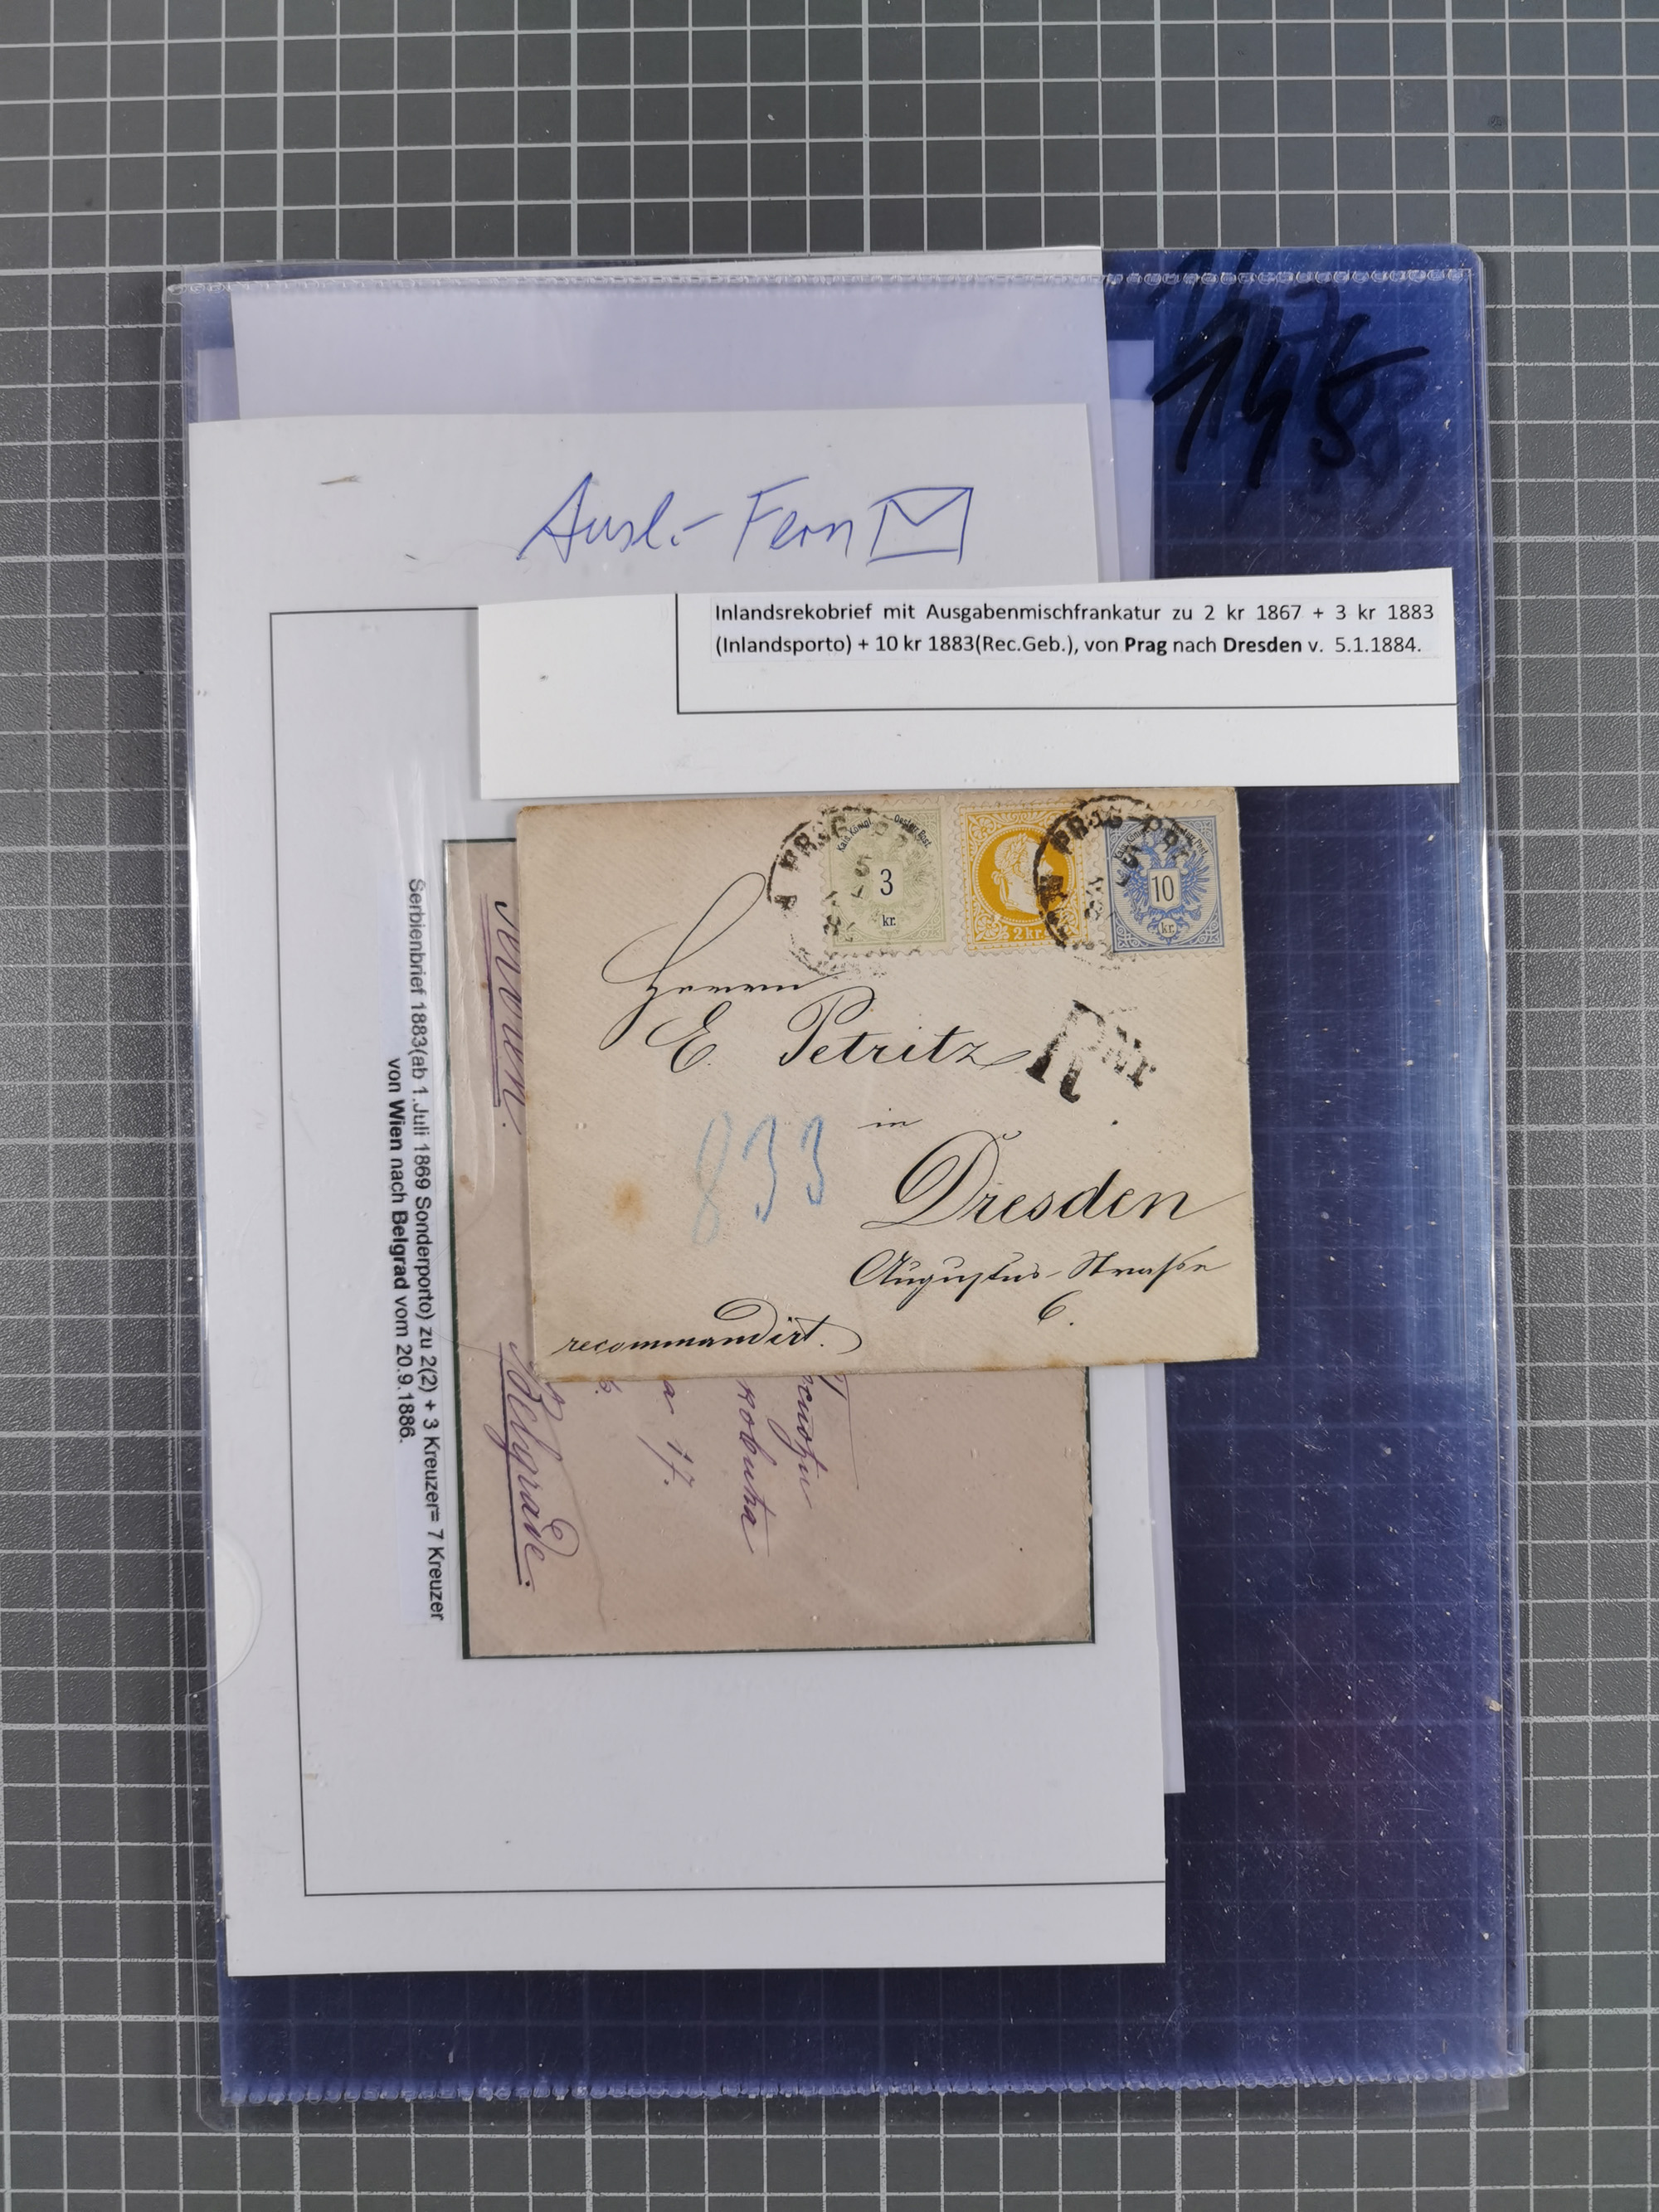 145
Ausl.- Fern
Inlandsrekobrief mit Ausgabenmischfrankatur zu 2 kr 1867 + 3 kr 1883
(Inlandsporto) + 10 kr 1883(Rec.Geb.), von Prag nach Dresden v. 5.1.1884.
3
kr.
2 kr.
10
kr.
PRAG
PRAG
Herrn
E. Petritz
R Nr
in
833
Dresden
Augustus-Straße
6.
recommandirt.
Serbienbrief 1883(ab 1.Juli 1869 Sonderporto) zu 2(2) + 3 Kreuzer= 7 Kreuzer
von Wien nach Belgrad vom 20.9.1886.
a 17.
Belgrade.